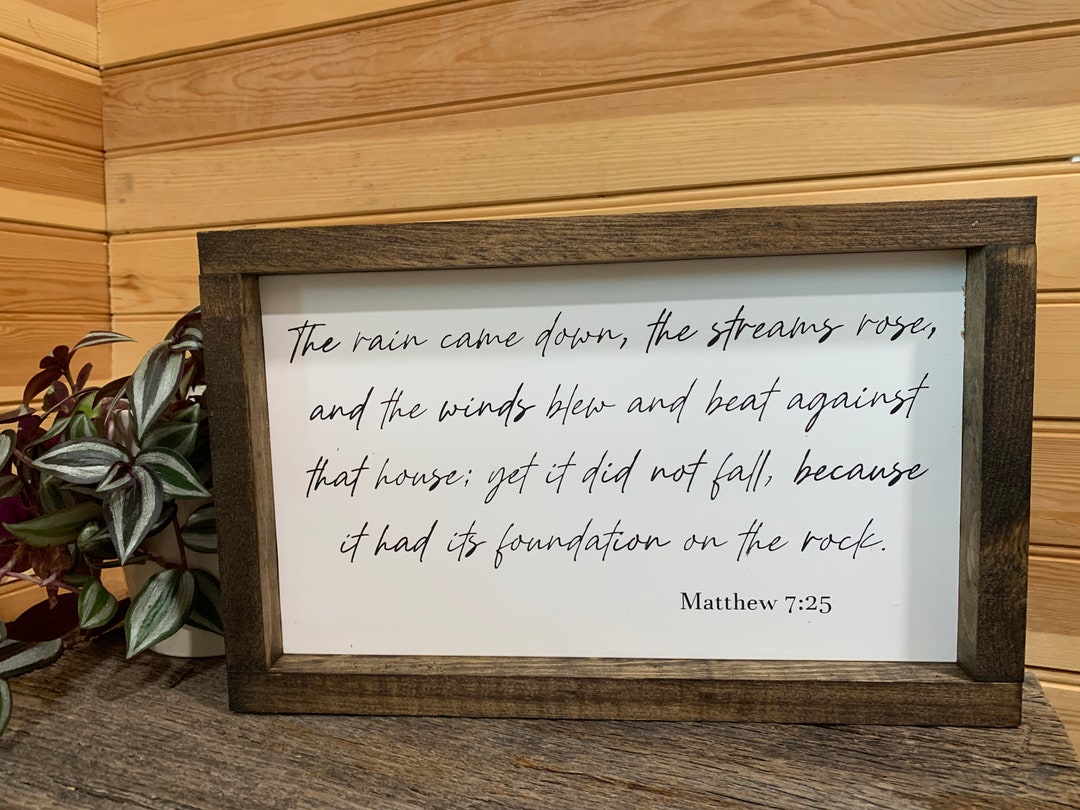 The rain came down, the streams rose,
and the winds blew and beat against
that house; yet it did not fall, because
it had its foundation on the rock.
Matthew 7:25